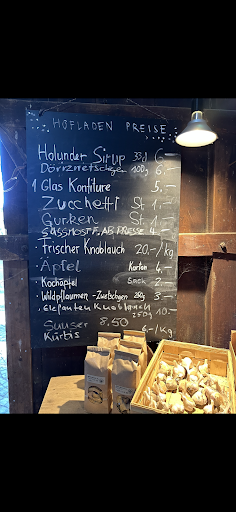 HOFLADEN PREISE
Holunder Sirup 33cl 6.-
Dörrzwetschgen 100g 6.-
1 Glas Konfitüre 5.-
Zucchetti St. 1.-
Gurken St. 1.-
SÜSSMOST F. AB PRESSE 4.-
Frischer Knoblauch 20.-/kg
Äpfel Karton 4.-
Kochäpfel Sack 2.-
Wildpflaumen -Zwetschgen 250g 3.-
Elefanten Knoblauch
250g 10.-
Suuser 8.50
Kürbis 6.-/kg